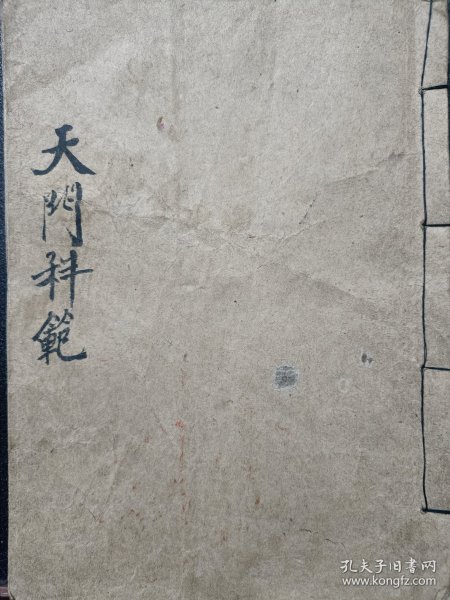 天門科範
孔夫子旧书网
www.kongfz.com